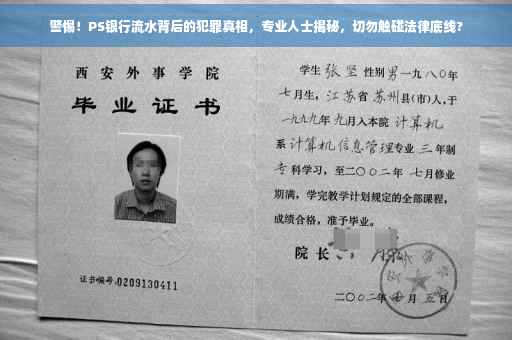 警惕！PS银行流水背后的犯罪真相，专业人士揭秘，切勿触碰法律底线？
西安外事学院
毕业证书
证书编号:0209130411
学生 张坚 性别男 一九八〇年
七月生，江苏省苏州县(市)人，于
一九九九年九月入本院 计算机
系 计算机信息管理专业 三年制
专科学习，至二〇〇二年 七月修业
期满，学完教学计划规定的全部课程，
成绩合格，准予毕业。
院长
二〇〇二年 月五日